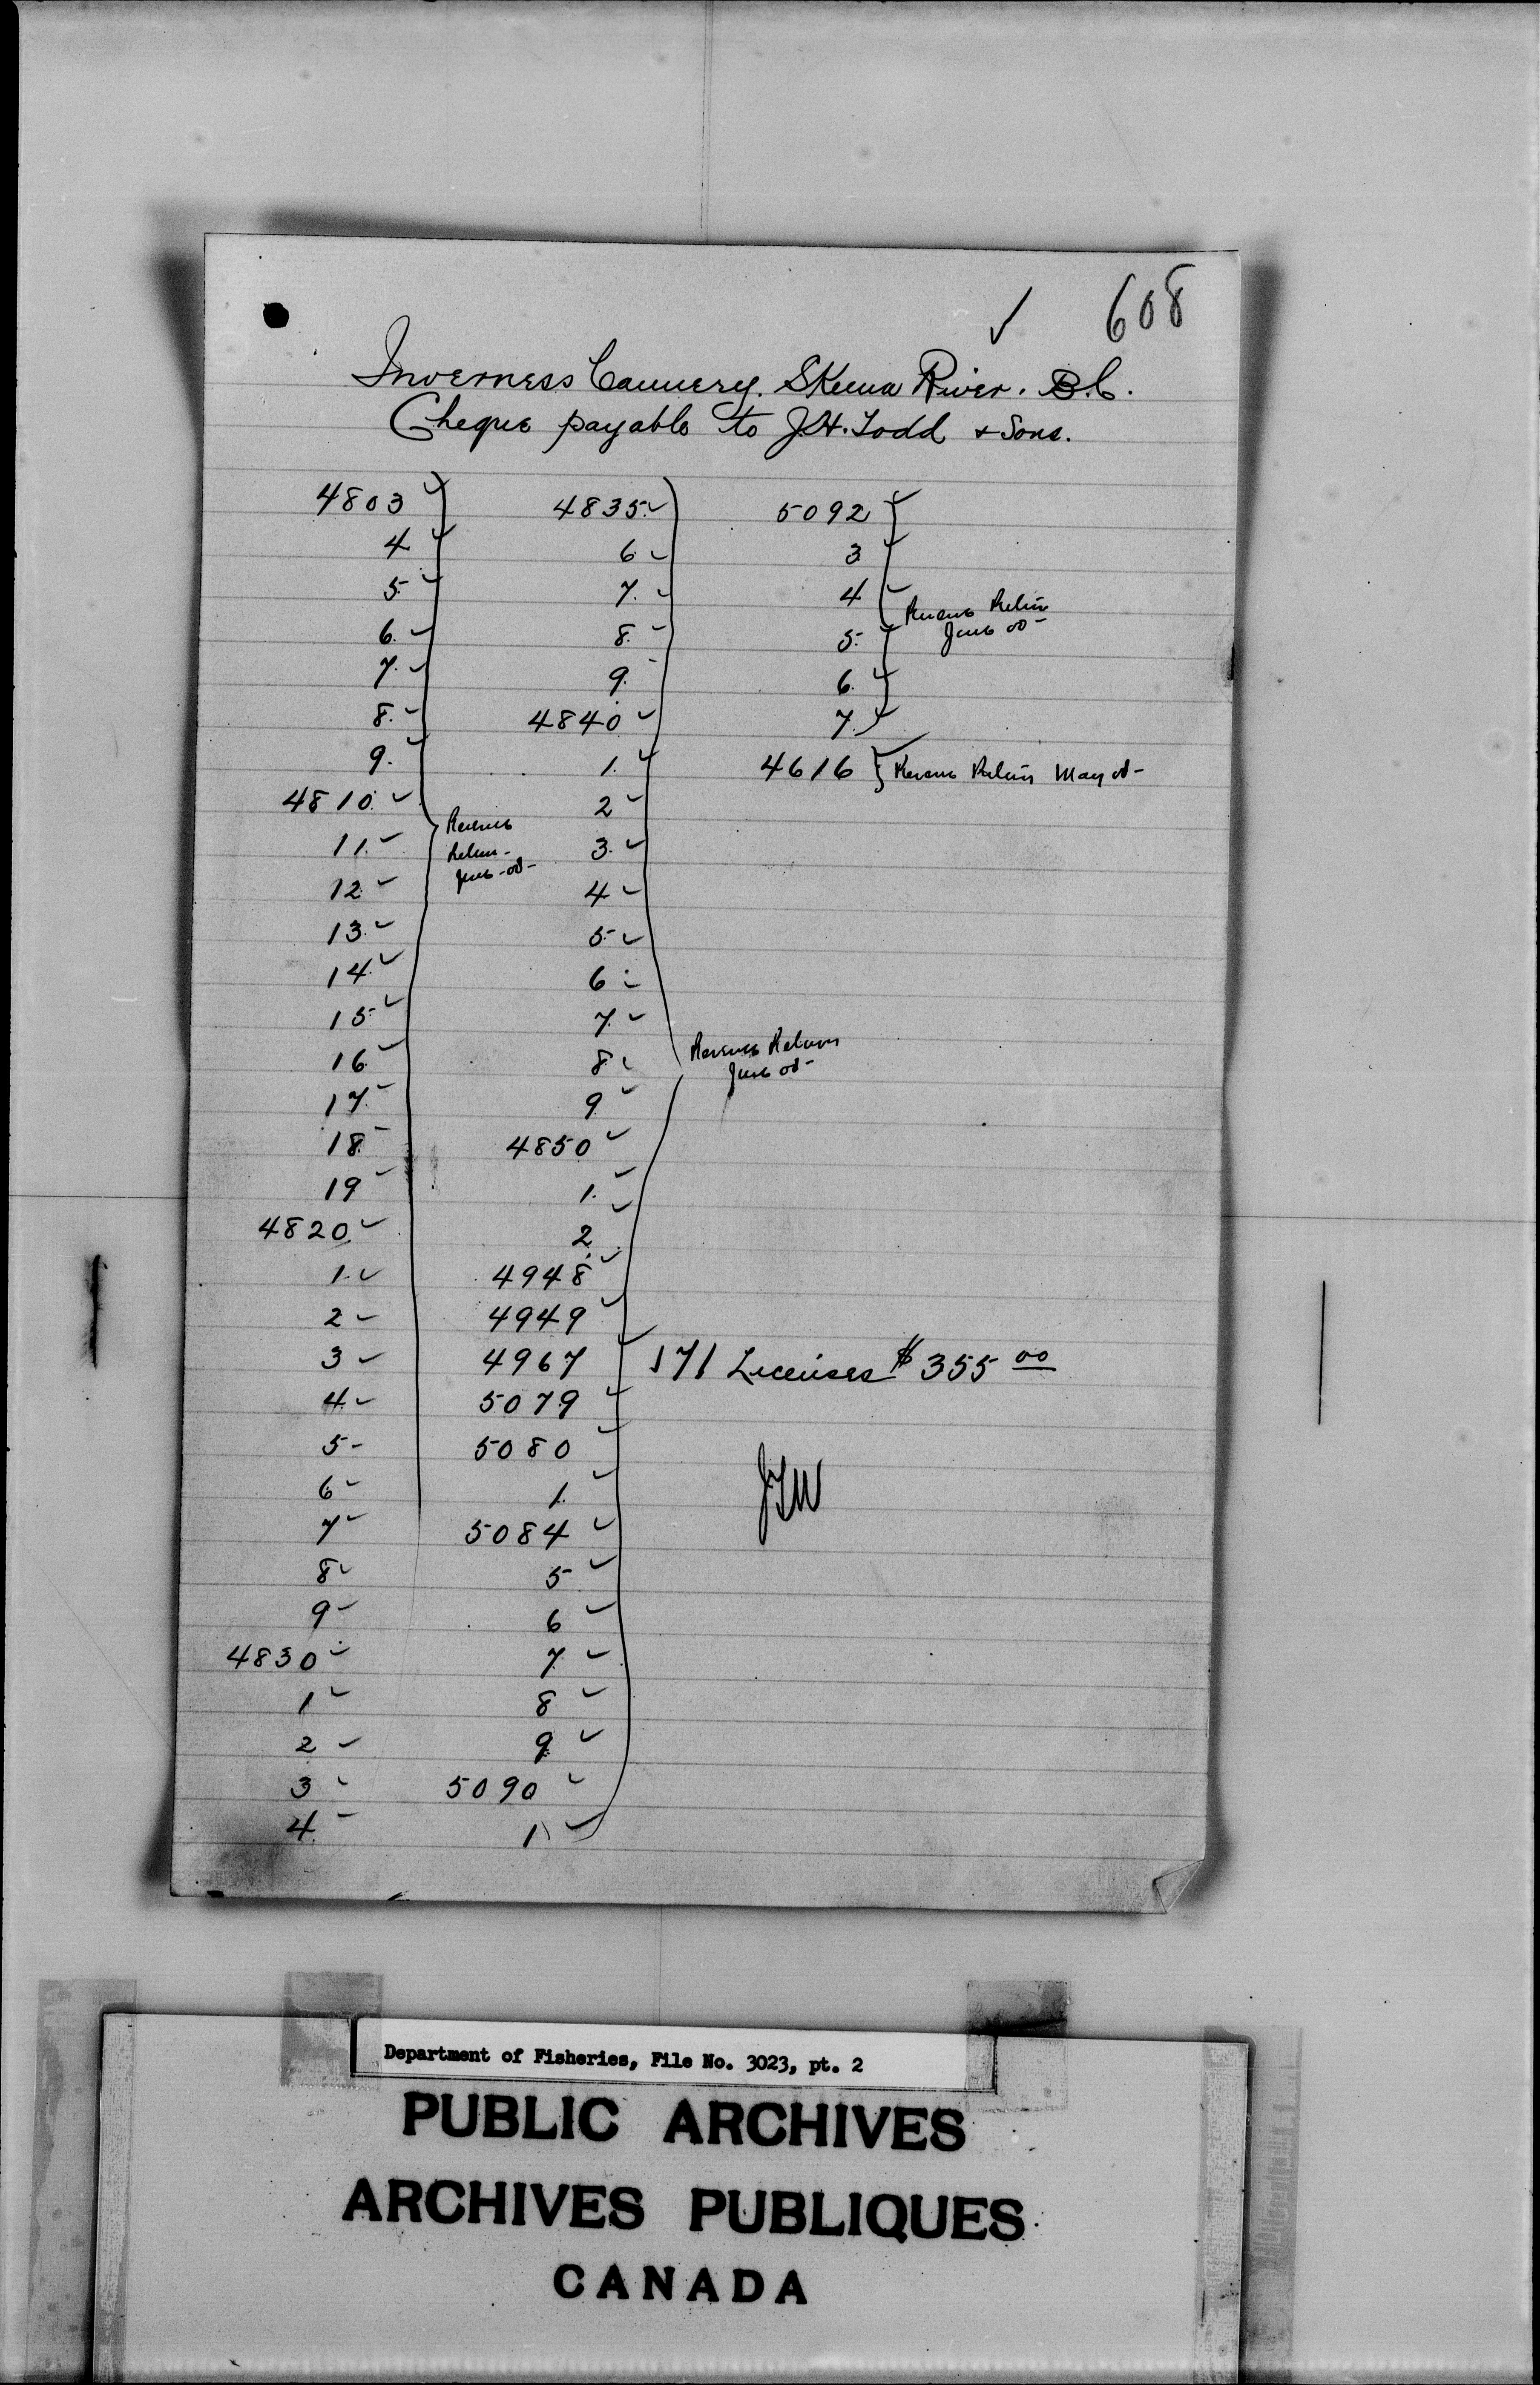 ✓ 608
Inverness Cannery. Skeena River. B.C.
Cheque payable to J.H. Todd & Sons.
4803 ✓
4 ✓
5. ✓
6. ✓
7. ✓
8. ✓
9. ✓
4810. ✓
11. ✓
12. ✓
13. ✓
14. ✓
15. ✓
16. ✓
17. ✓
18. ✓
19 ✓
4820. ✓
1. ✓
2 ✓
3 ✓
4. ✓
5 -
6 ✓
7 ✓
8 ✓
9 ✓
4830 ✓
1 ✓
2 ✓
3 ✓
4. ✓
Revenue
Return -
June - 08 -
4835. ✓
6. ✓
7. ✓
8. ✓
9. -
4840 ✓
1. ✓
2 ✓
3. ✓
4 ✓
5 ✓
6 ✓
7. ✓
8. ✓
9 ✓
4850 ✓
1. ✓
2. ✓
4948 ✓
4949 ✓
4967 ✓
5079 ✓
5080 ✓
1. ✓
5084 ✓
5 ✓
6 ✓
7. ✓
8 ✓
9 ✓
5090 ✓
1 ✓
Revenue Return
June 08 -
5092 ✓
3 ✓
4 ✓
5. ✓
6. ✓
7. ✓
Revenue Return
June 08 -
4616 ✓ Revenue Return May 08 -
171 Licenses $355 00
Department of Fisheries, File No. 3023, pt. 2
PUBLIC ARCHIVES
ARCHIVES PUBLIQUES
CANADA